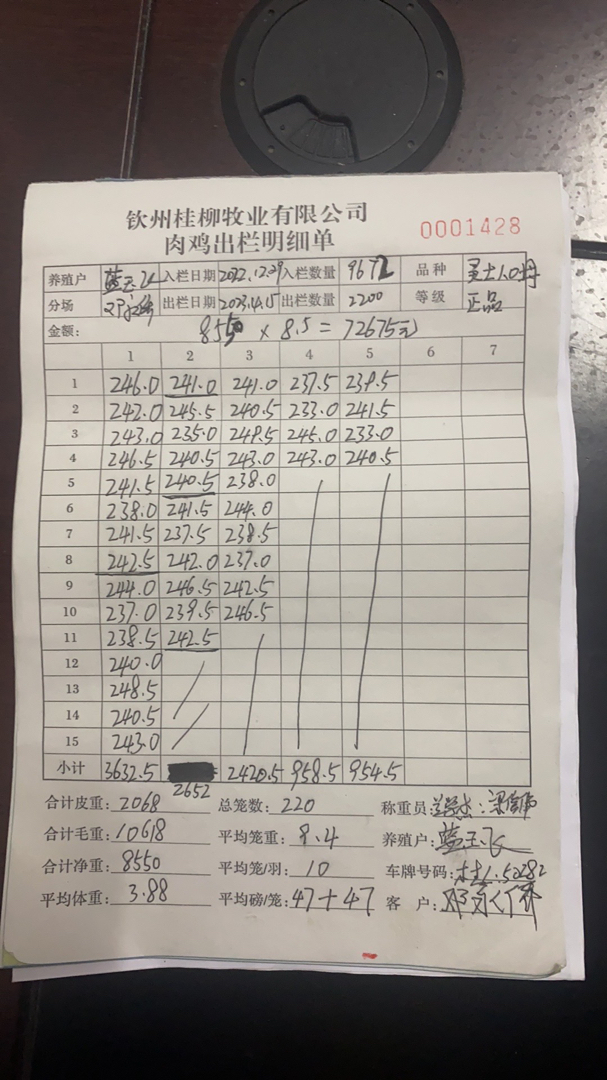 钦州桂柳牧业有限公司
肉鸡出栏明细单
0001428
养殖户 蓝玉飞 入栏日期 2022.12.29 入栏数量 9672 品种
分场 出栏日期 2023.4.15 出栏数量 2200 等级 正品
金额: 8550 × 8.5 = 72675元
1 2 3 4 5 6 7
1 246.0 241.0 241.0 237.5 239.5
2 242.0 245.5 240.5 233.0 241.5
3 243.0 235.0 249.5 245.0 233.0
4 246.5 240.5 243.0 243.0 240.5
5 241.5 240.5 238.0
6 238.0 241.5 244.0
7 241.5 237.5 238.5
8 242.5 242.0 237.0
9 244.0 246.5 242.5
10 237.0 239.5 246.5
11 238.5 242.5
12 240.0
13 248.5
14 240.5
15 243.0
小计 3632.5 2652 2420.5 958.5 954.5
合计皮重: 2068 总笼数: 220 称重员:
合计毛重: 10618 平均笼重: 9.4 养殖户: 蓝玉飞
合计净重: 8550 平均笼/羽: 10 车牌号码:
平均体重: 3.88 平均磅/笼: 47+47 客户: